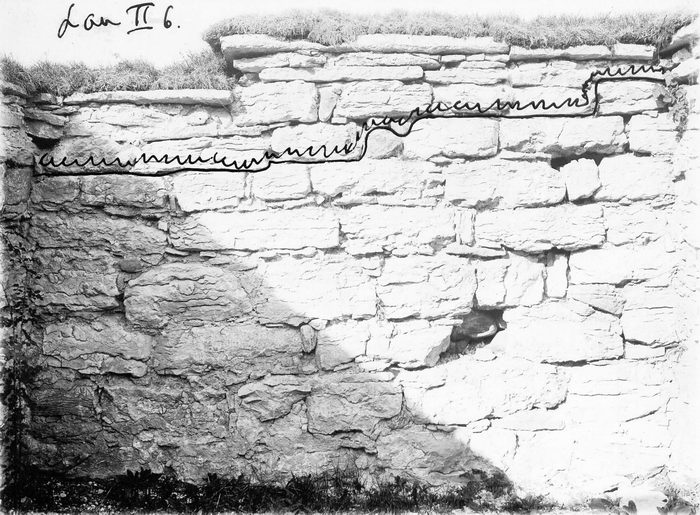 Lau II 6.